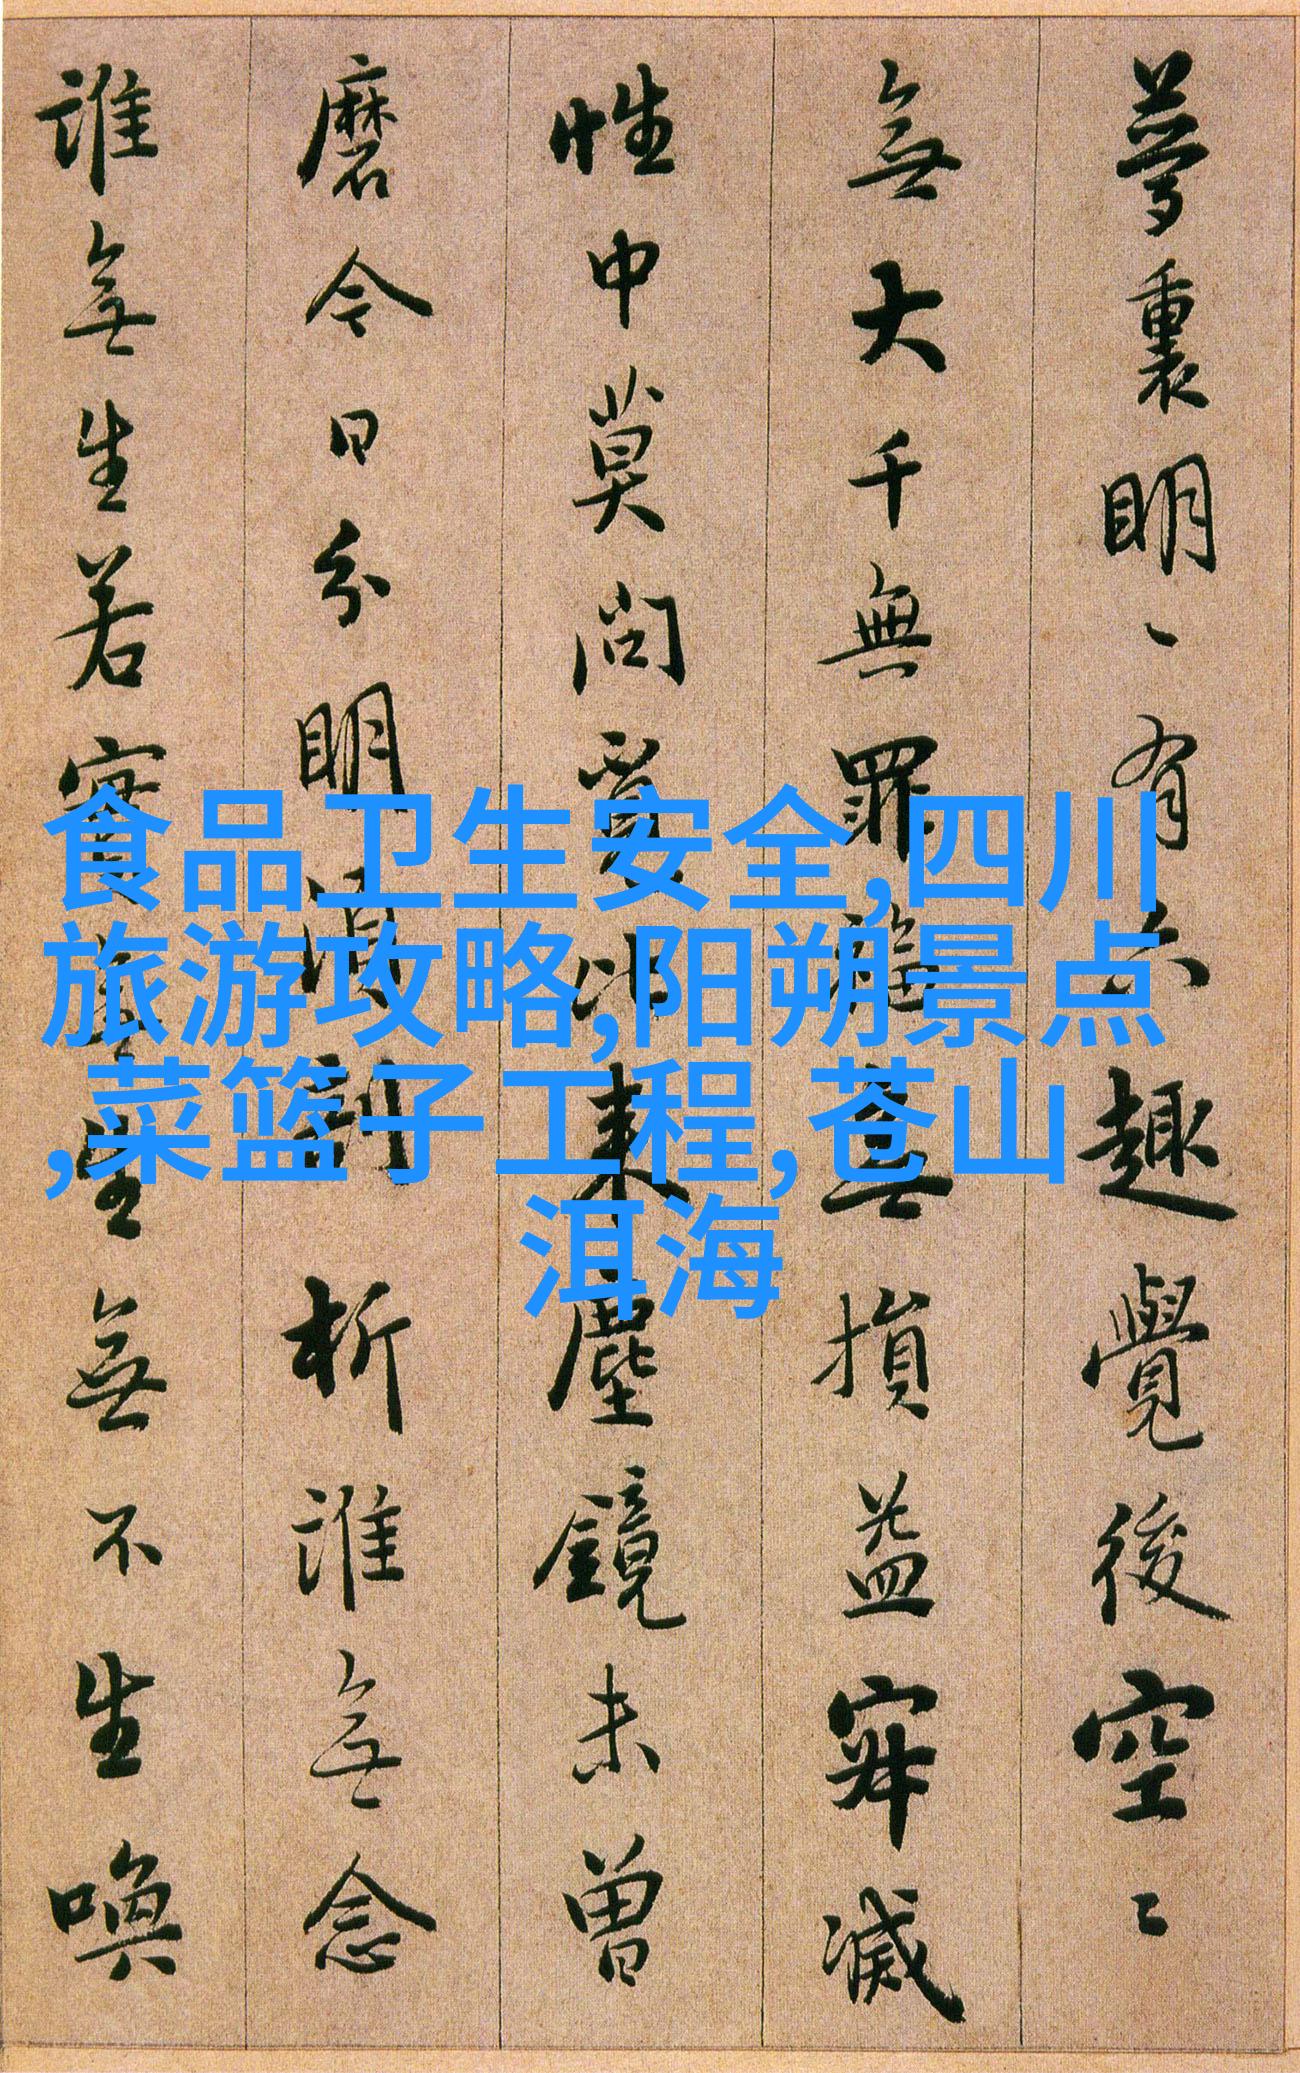 夢裏明〻有六趣覺後空〻
無大千無罪福無損益寂滅
性中莫問覓比來塵鏡未曾
磨今日分明須剖析誰無念
誰無生若實無生無不生喚
食品卫生安全,四川
旅游攻略,阳朔景点
,菜篮子工程,苍山
洱海